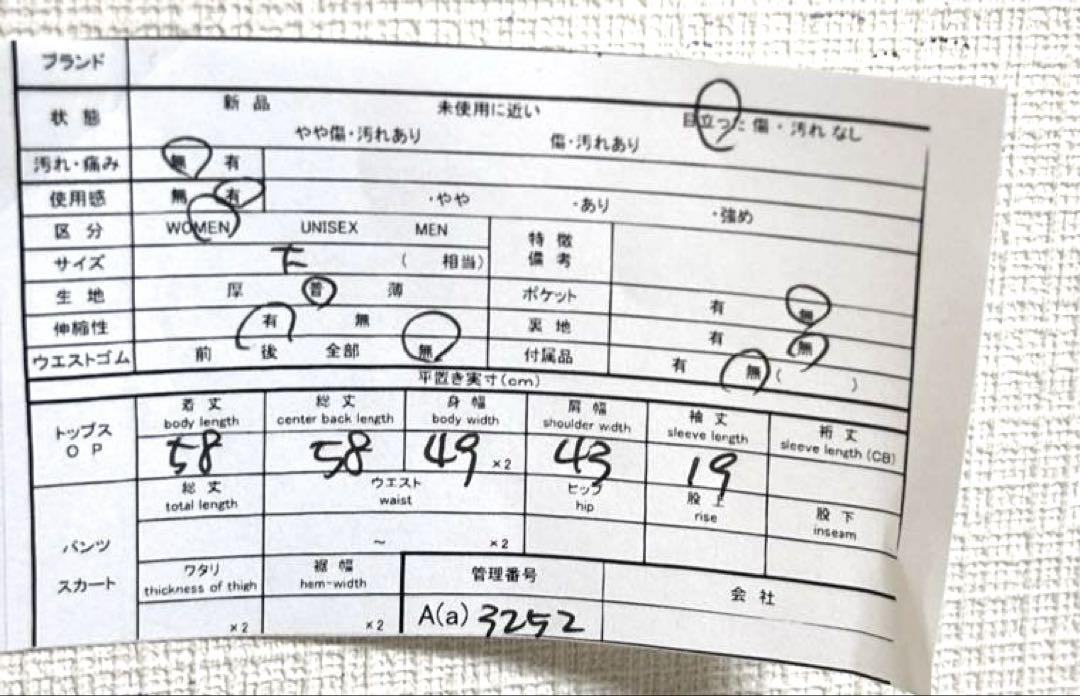 ブランド
状態 新品 未使用に近い 目立った傷・汚れなし
やや傷・汚れあり 傷・汚れあり
汚れ・痛み 無 有
使用感 無 有 ・やや ・あり ・強め
区分 WOMEN UNISEX MEN 特徴
備考
サイズ ( 相当)
生地 厚 普 薄 ポケット 有 無
伸縮性 有 無 裏地 有 無
ウエストゴム 前 後 全部 無 付属品 有 無 ( )
平置き実寸(cm)
トップス
OP
着丈 総丈 身幅 肩幅 袖丈 裄丈
body length center back length body width shoulder width sleeve length sleeve length (CB)
58 58 49 ×2 43 19
パンツ
スカート
総丈 ウエスト ヒップ 股上 股下
total length waist hip rise inseam
~ ×2
ワタリ 裾幅 管理番号 会社
thickness of thigh hem-width
×2 ×2 A(a) 3252